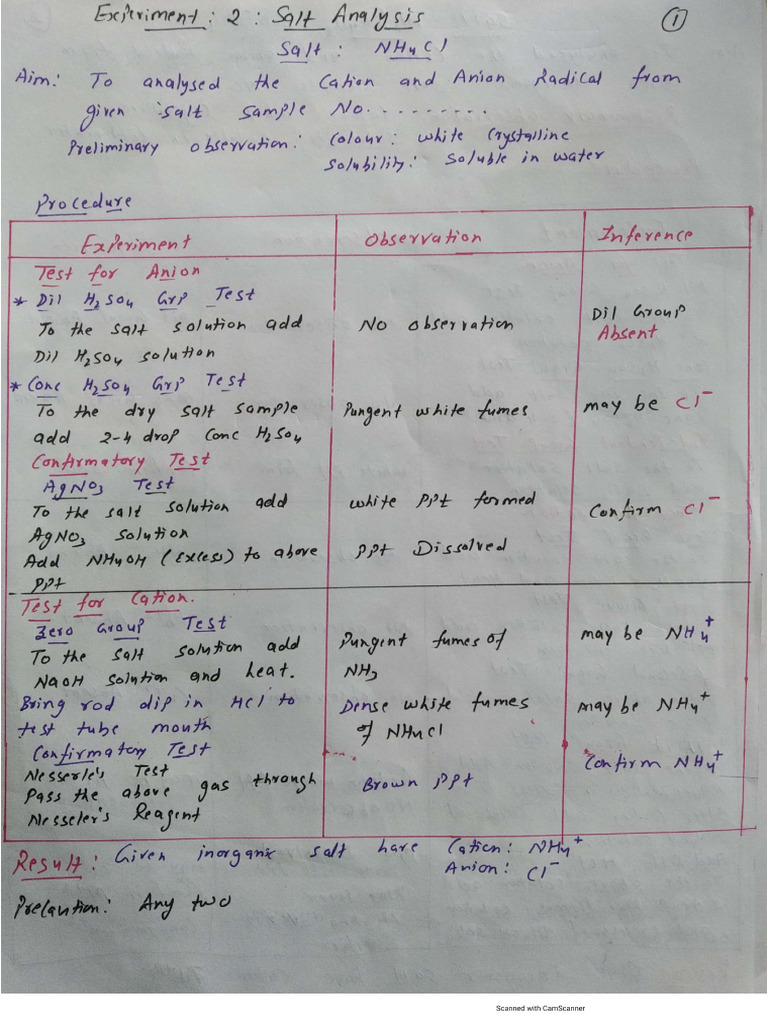 Experiment : 2 : Salt Analysis
1
Salt : NH4Cl
Aim: To analysed the Cation and Anion Radical from
given salt sample No..........
Preliminary observation: Colour : white Crystalline
Solubility: Soluble in water
Procedure
Experiment Observation Inference
Test for Anion
* Dil H2SO4 Grp Test
To the salt solution add
Dil H2SO4 solution
No observation
Dil Group
Absent
* Conc H2SO4 Grp Test
To the dry salt sample
add 2-4 drop Conc H2SO4
Pungent white fumes
may be Cl-
Confirmatory Test
AgNO3 Test
To the salt solution add
AgNO3 solution
Add NH4OH (Excess) to above
PPt
white PPt formed
PPt Dissolved
Confirm Cl-
Test for Cation.
Zero Group Test
To the salt solution add
NaOH solution and heat.
Pungent fumes of
NH3
may be NH4+
Bring rod dip in HCl to
test tube mouth
Dense white fumes
of NH4Cl
may be NH4+
Confirmatory Test
Nesserle's Test
Pass the above gas through
Nesseler's Reagent
Brown PPt
Confirm NH4+
Result : Given inorganic salt have Cation: NH4+
Anion: Cl-
Precaution: Any two
Scanned with CamScanner